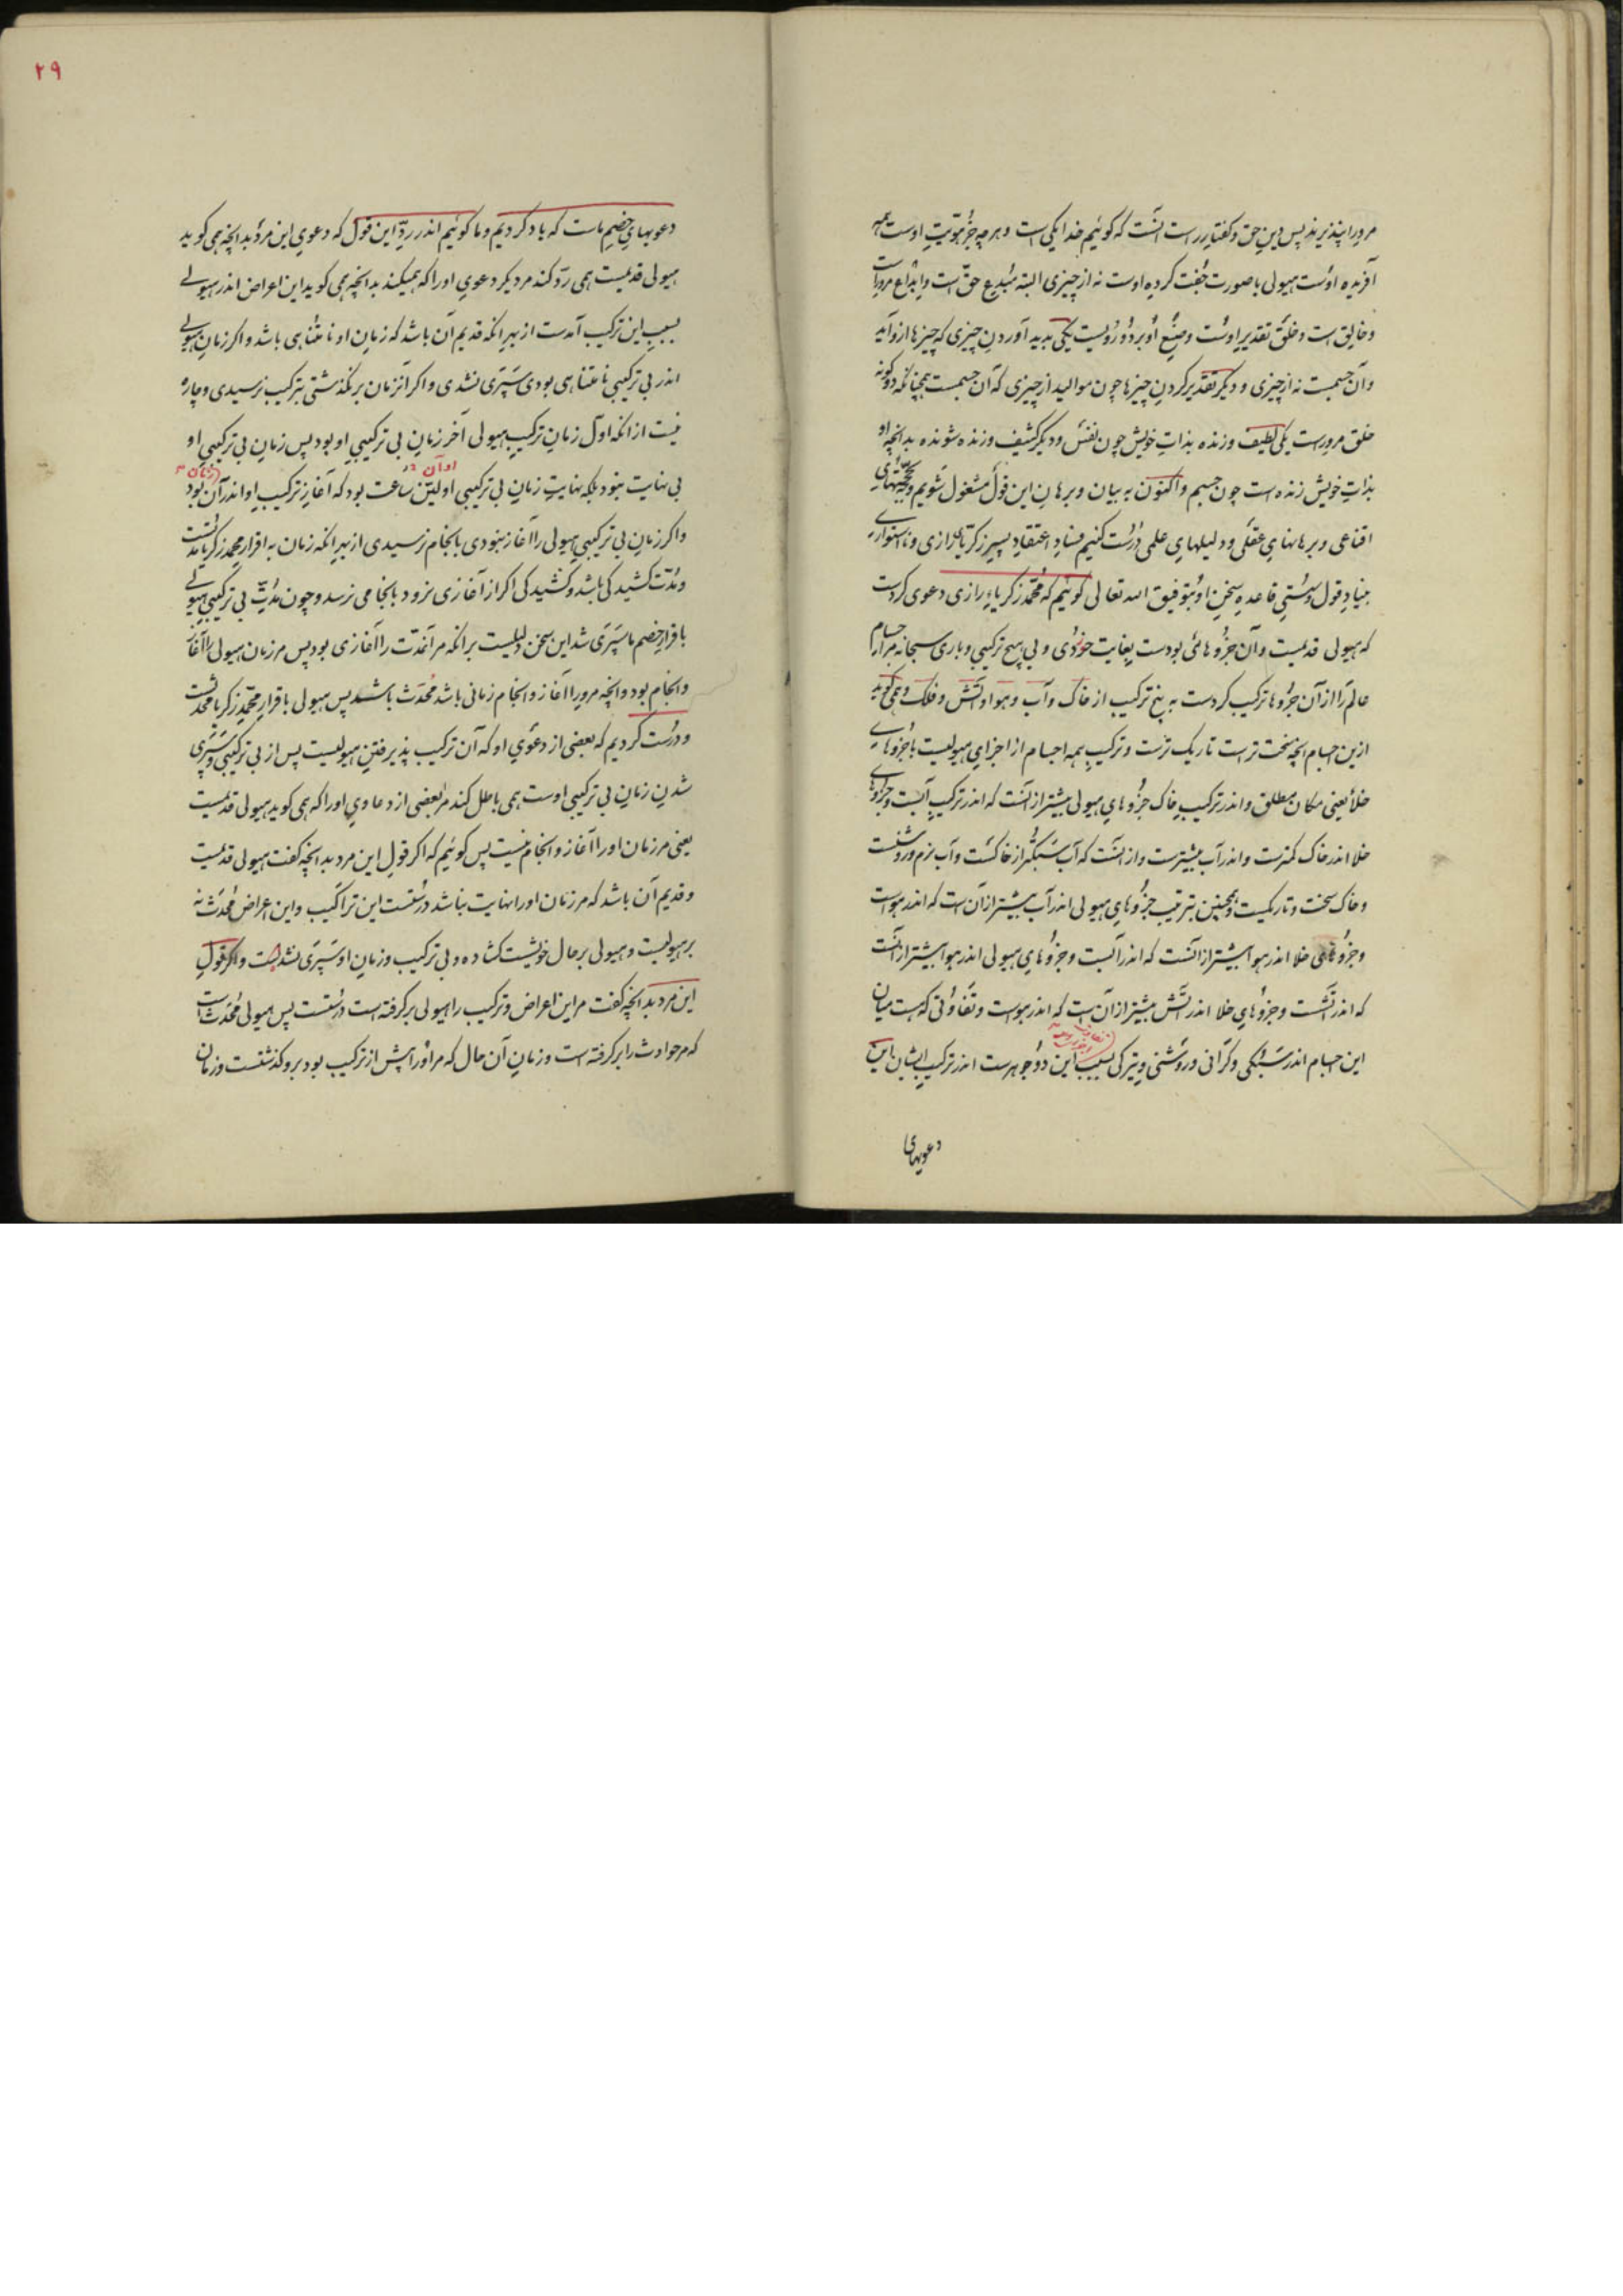 مرورا پنذیرند پس دین حق و گفتار راست آنست که گوئیم خدا یکی است و هر چه جز هویت اوست همه
آفریده اوست هیولی با صورت جفت کرده اوست نه از چیزی البته مبدع حق است و ابداع مروراست
و خالق است و خلق تقدیر اوست و صنع او بر دو رویست یکی بدید آوردن چیزی که چیزها ازو آید
و آن جسمست نه از چیزی و دیگر تقدیر کردن چیزها چون موالید از چیزی که آن جسمست همچنانکه دو گونه
خلق مروراست یکی لطیف و زنده بذات خویش چون نفس و دیگر کثیف و زنده شونده بدانچه او
بذات خویش زنده است چون جسم و اکنون به بیان و برهان این قول مشغول شویم و بحجتهای
اقناعی و برهانهای عقلی و دلیلهای علمی درست کنیم فساد اعتقاد پسر زکریای رازی و نااستواری
بنیاد قول و سستی قاعده سخن او بتوفیق الله تعالی گوئیم که محمد زکریاء رازی دعوی کردست
که هیولی قدیمست و آن جزوهائی بودست بغایت خوردی و بی هیچ ترکیبی و باری سبحانه مر اجسام
عالم را از آن جزوها ترکیب کردست به پنج ترکیب از خاک و آب و هوا و آتش و فلک و همی گوید
ازین اجسام آنچه سخت ترست تاریک ترست و ترکیب همه اجسام از اجزای هیولیست با جزوهای
خلأ یعنی مکان مطلق و اندر ترکیب خاک جزوهای هیولی بیشتر از آنست که اندر ترکیب آبست و جزوهای
خلا اندر خاک کمترست و اندر آب بیشترست و از آنست که آب سبکتر از خاکست و آب نرم و روشنست
و خاک سخت و تاریکست و همچنین بترتیب جزوهای هیولی اندر آب بیشتر از آن است که اندر هواست
و جزوهای خلا اندر هوا بیشتر از آنست که اندر آبست و جزوهای هیولی اندر هوا بیشتر از آنست
که اندر آتشست و جزوهای خلا اندر آتش بیشتر از آن است که اندر هواست و تفاوتی که هست میان
این اجسام اندر سبکی و گرانی و روشنی و تیرگی بسبب این دو جوهرست اندر ترکیب ایشان این
دعویهای
۲۹
دعویهای خصم ماست که یاد کردیم و ما گوئیم اندر رد این قول که دعوی این مرد بدانچه همی گوید
هیولی قدیمست همی رد کند مر دیگر دعوی او را که همیکند بدانچه همی گوید این اعراض اندر هیولی
بسبب این ترکیب آمدست از بهر آنکه قدیم آن باشد که زمان او نامتناهی باشد و اگر زمان هیولی
اندر بی ترکیبی نامتناهی بودی سپری نشدی و اگر آن زمان بر نگذشتی بترکیب نرسیدی و چاره
نیست از آنکه اول زمان ترکیب هیولی آخر زمان بی ترکیبی او بود پس زمان بی ترکیبی او
بی نهایت نبود بلکه نهایت زمان بی ترکیبی او لین ساعت بود که آغاز ترکیب او اندر آن بود
او آن
زمان
و اگر زمان بی ترکیبی هیولی را آغاز نبودی بانجام نرسیدی از بهر آنکه زمان به اقرار محمد زکریا مدتست
و مدت کشیدگی باشد و کشیدگی اگر از آغازی نرود بانجامی نرسد و چون مدت بی ترکیبی هیولی
باقرار خصم ما سپری شد این سخن دلیلست بر آنکه مر آنمدت را آغازی بود پس مر زمان هیولی را آغاز
و انجام بود و آنچه مرورا آغاز و انجام زمانی باشد محدث باشد پس هیولی باقرار محمد زکریا محدثست
و درست کردیم که بعضی از دعوی او که آن ترکیب پذیرفتن هیولیست پس از بی ترکیبی و سپری
شدن زمان بی ترکیبی اوست همی باطل کند مر بعضی از دعاوی او را که همی گوید هیولی قدیمست
یعنی مر زمان او را آغاز و انجام نیست پس گوئیم که اگر قول این مرد بدانچه گفت هیولی قدیمست
و قدیم آن باشد که مر زمان او را نهایت نباشد درستست این تراکیب و این اعراض محدث نه
بر هیولیست و هیولی بر حال خویشست گشاده و بی ترکیب و زمان او سپری نشدست و اگر قول
این مرد بدانچه گفت مر این اعراض و ترکیب را هیولی بر گرفته است درستست پس هیولی محدث است
که مر حوادث را بر گرفته است و زمان آن حال که مر او را پیش از ترکیب بود برو گذشتست و زمان